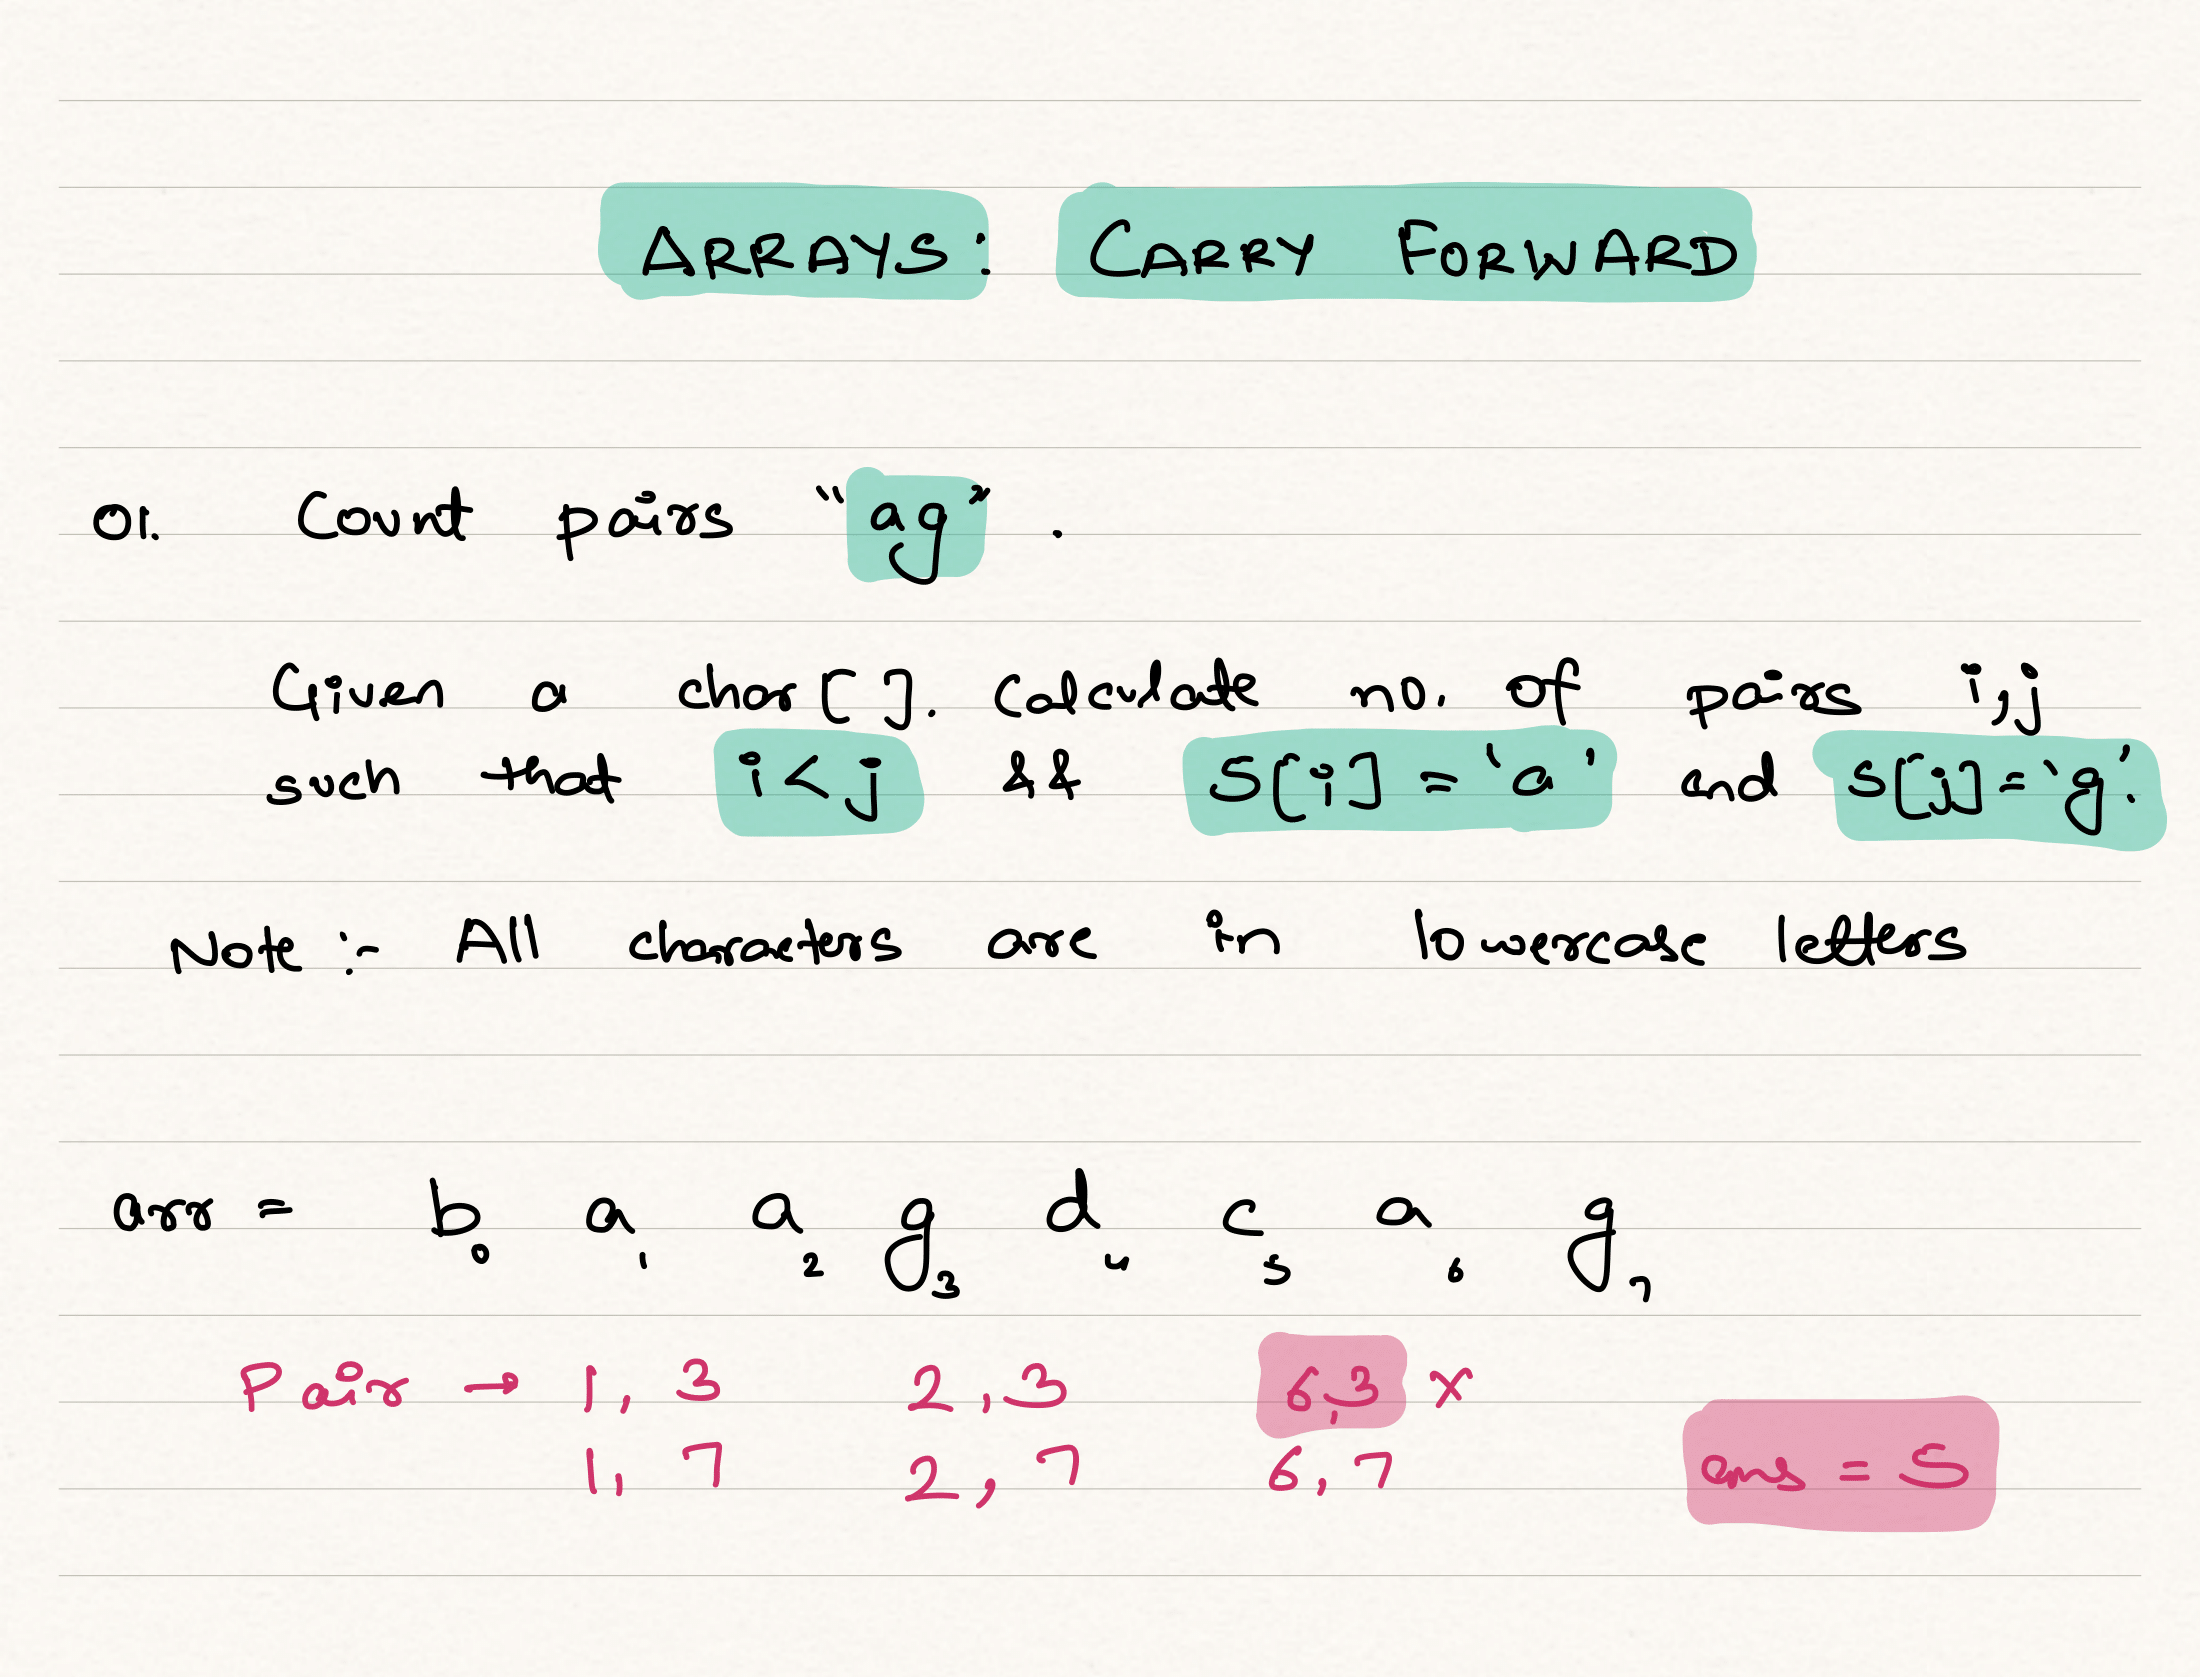 ARRAYS: CARRY FORWARD
01. Count pairs "ag" .
Given a char[]. Calculate no. of pairs i,j
such that i<j && S[i] = 'a' and S[j]='g'.
Note :- All characters are in lowercase letters
arr = b a a g d c a g
0 1 2 3 4 5 6 7
Pair → 1, 3 2, 3 6,3 x
1, 7 2, 7 6, 7 ans = 5